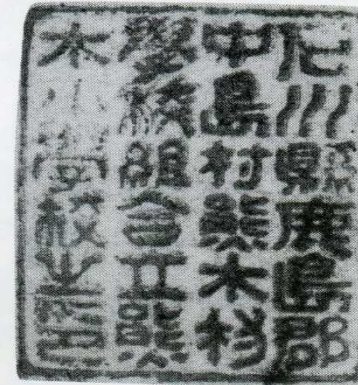 石川縣鹿島郡
中島村熊木村
學校組合立熊
木小學校之印